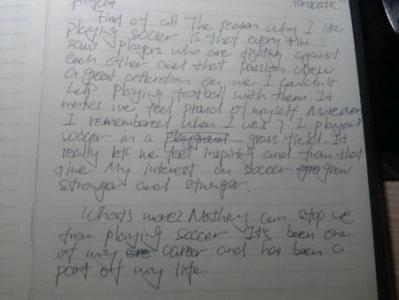 project favorite
First of all The reason why I like
playing soccer is that every time I
saw players who are fighting against
each other and that passion drew
a great attention on me I couldn't
help playing football with them. It
makes me feel proud of myself. Moreover
I remembered when I was 7 I played
soccer in a playground grass field. It
really lets me feel inspiring and from that
time My interest on soccer grow
stronger and stronger.
What's more? Nothing can stop me
from playing soccer It's been one
of my career and has been a
part of my life.